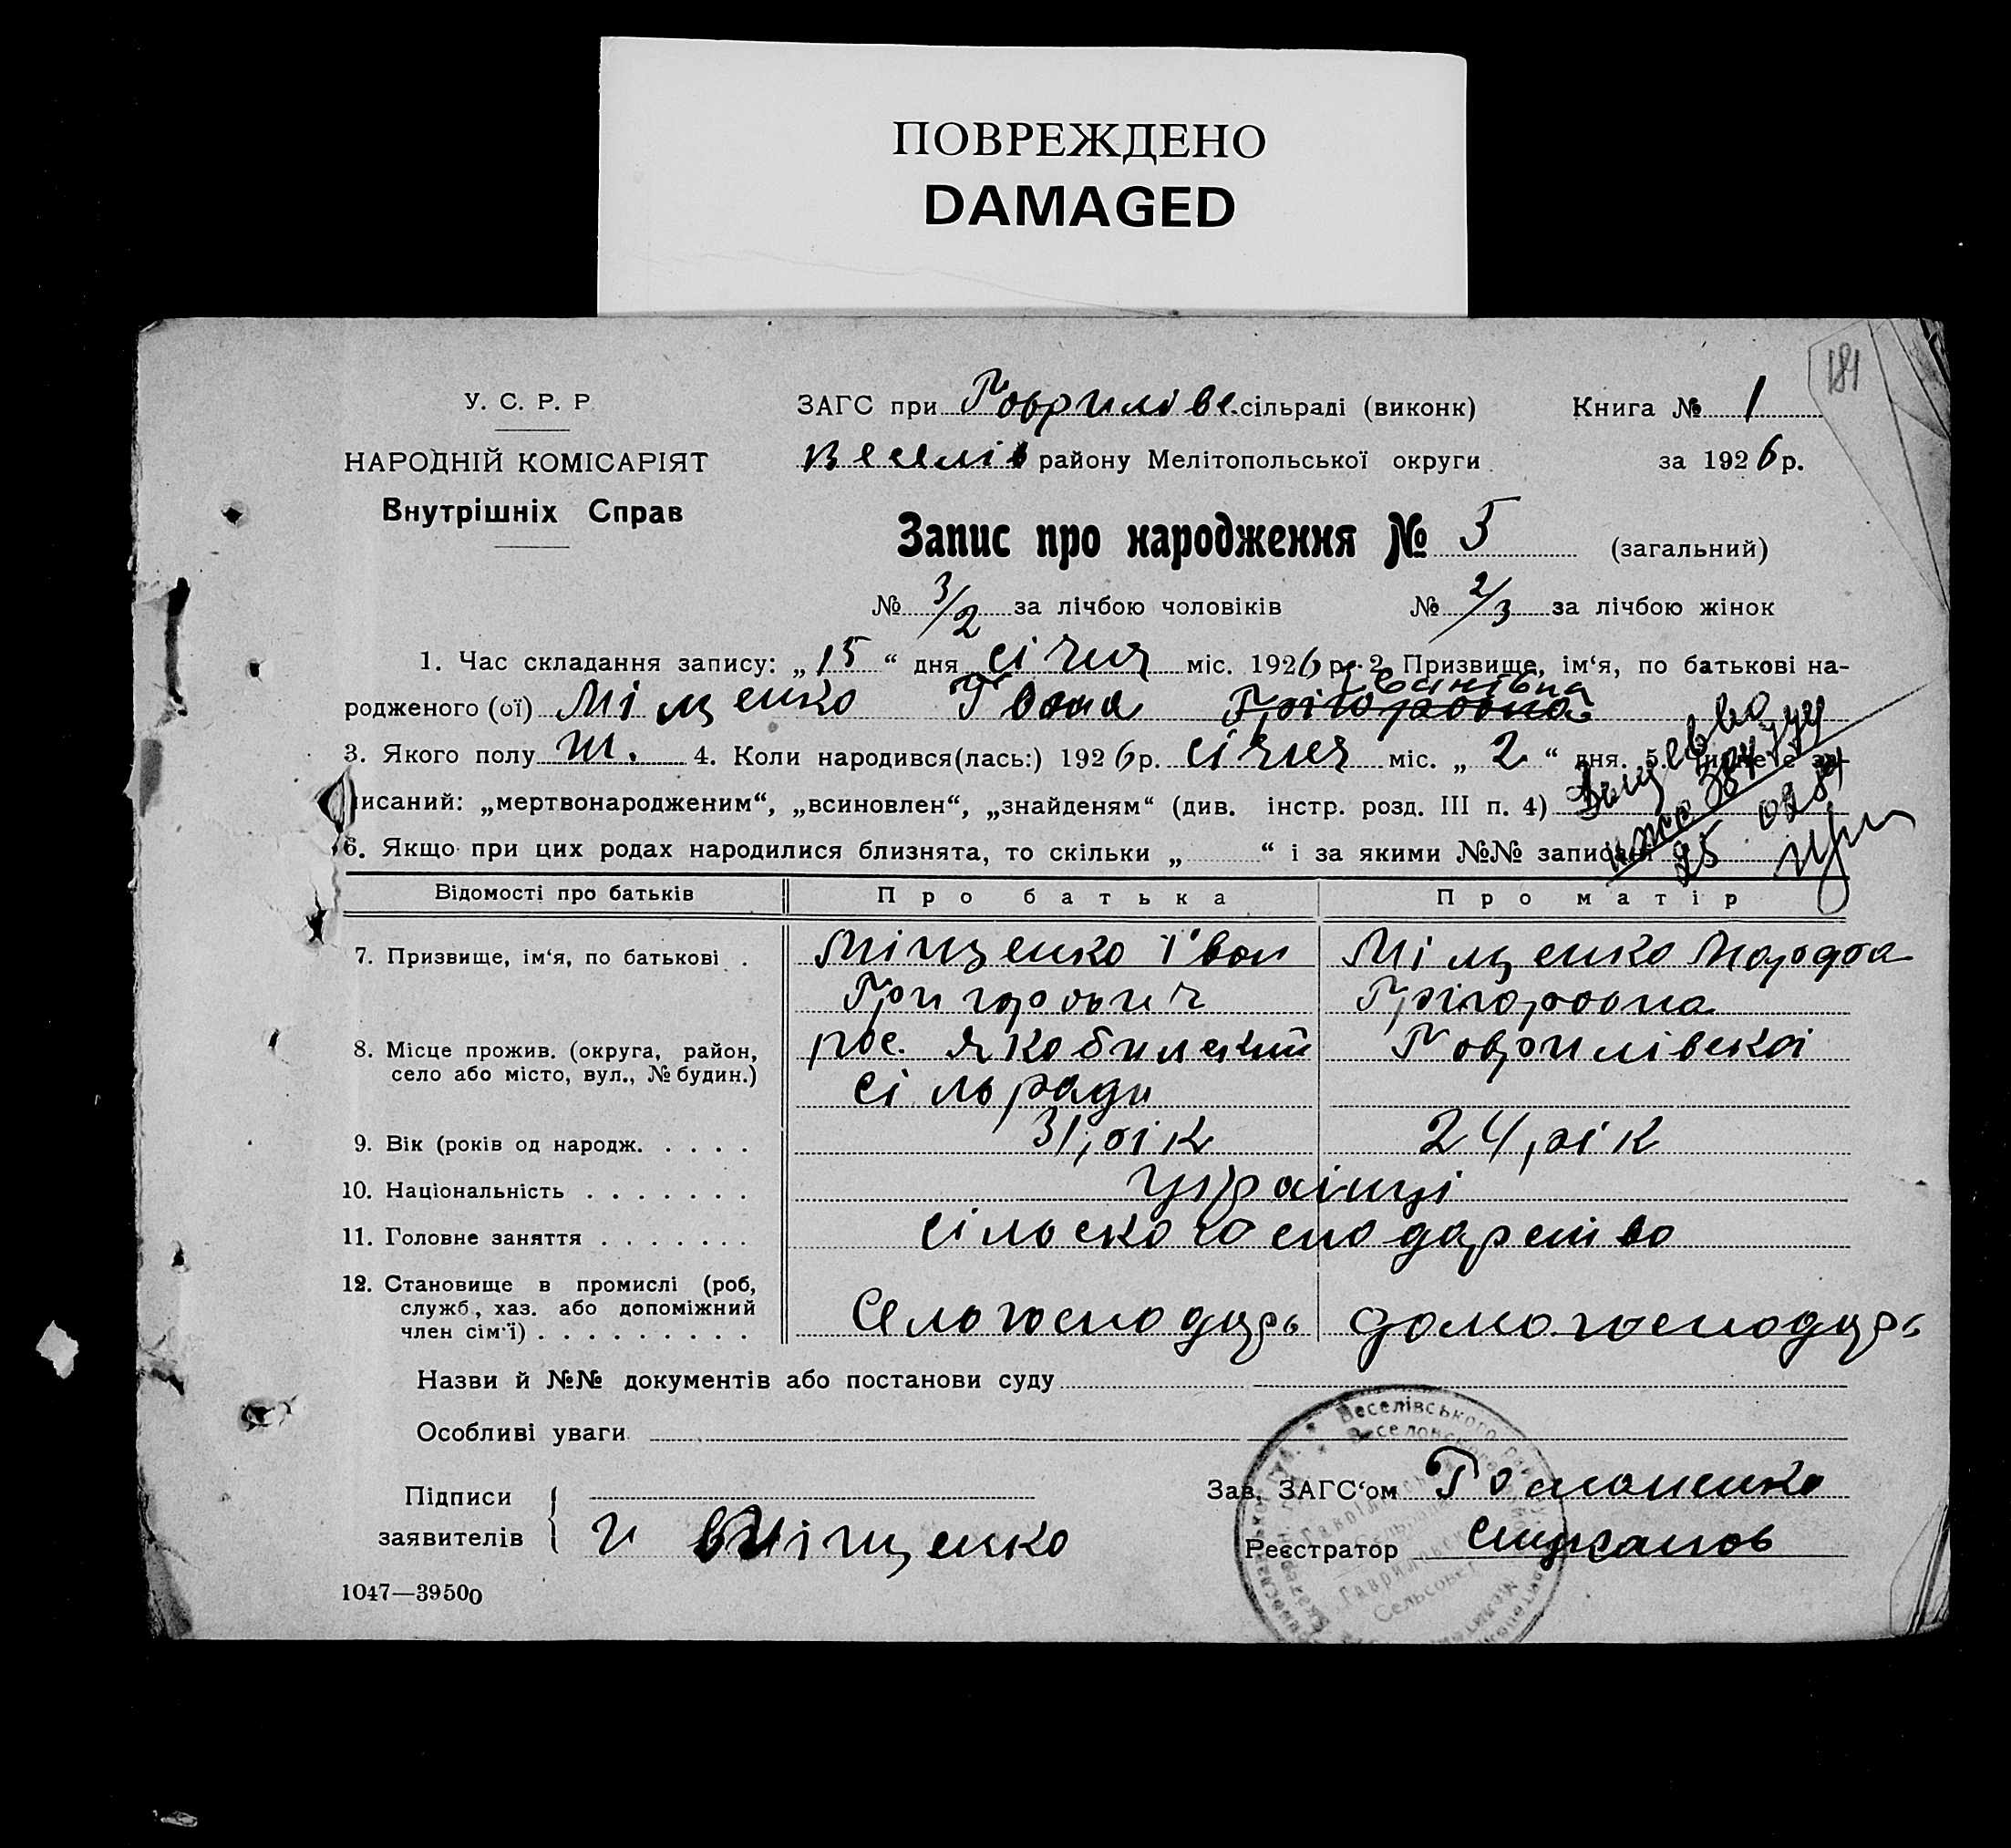 ПОВРЕЖДЕНО
DAMAGED
181
У. С. Р. Р
НАРОДНІЙ КОМІСАРІЯТ
Внутрішніх Справ
ЗАГС при Гаврилівс. сільраді (виконк) Книга № 1
Веселів району Мелітопольської округи за 1926 р.
Запис про народження № 5 (загальний)
№ 3/2 за лічбою чоловіків № 2/3 за лічбою жінок
1. Час складання запису: „15“ дня січня міс. 1926 р. 2 Призвище, ім‘я, по батькові на-
Іванівна
родженого (ої) Міщенко Ганна Грігоровна
3. Якого полу ж. 4. Коли народився(лась:) 1926 р. січня міс. „2“ дня. 5.
писаний: „мертвонародженим“, „всиновлен“, „знайденям“ (див. інстр. розд. III п. 4)
6. Якщо при цих родах народилися близнята, то скільки „ “ і за якими №№ записані
Відомості про батьків Про батька Про матір
7. Призвище, ім‘я, по батькові . Міщенко Іван Міщенко Марфа
Григорович Грігоровна
8. Місце прожив. (округа, район, рос. Якобинський Гаврилівскої
село або місто, вул., № будин.) сільради
9. Вік (років од народж. . . . . 31, рік 24, рік
10. Національність . . . . . . . українці
11. Головне заняття . . . . . . . сільскогосподарство
12. Становище в промислі (роб,
служб., хаз. або допоміжний Селогосподарь домогосподарь
член сім‘ї) . . . . . . . . .
Назви й №№ документів або постанови суду
Особливі уваги
Підписи
заявителів И Міщенко
Зав. ЗАГС‘ом
Реєстратор
1047—39500
Веселівського
Гаврил
Сельсовет